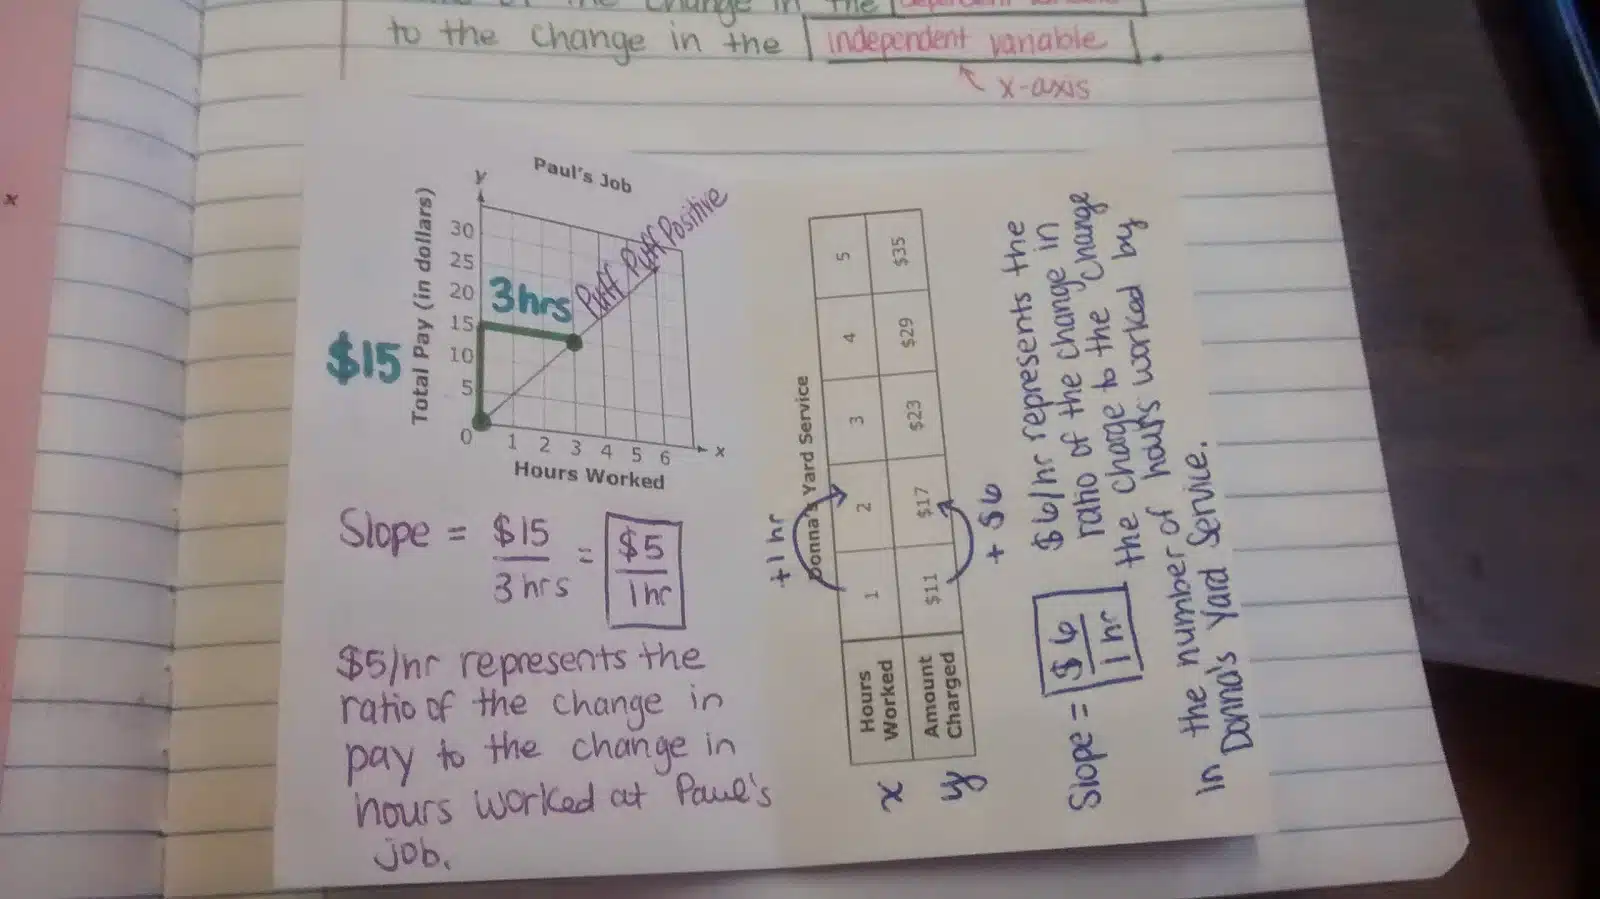 the change in the
to the change in the independent variable.
x-axis
Paul's Job
y
Total Pay (in dollars)
30
25
20
15
10
5
0
1 2 3 4 5 6
x
Hours Worked
$15
3hrs
Puff Puff Positive
Slope = $15 / 3 hrs = $5 / 1 hr
$5/hr represents the
ratio of the change in
pay to the change in
hours worked at Paul's
job.
+1 hr
Donna's Yard Service
x Hours Worked 1 2 3 4 5
y Amount Charged $11 $17 $23 $29 $35
+ $6
Slope = $6 / 1 hr
$6/hr represents the
ratio of the change in
the charge to the change
in the number of hours worked by
Donna's Yard Service.
x